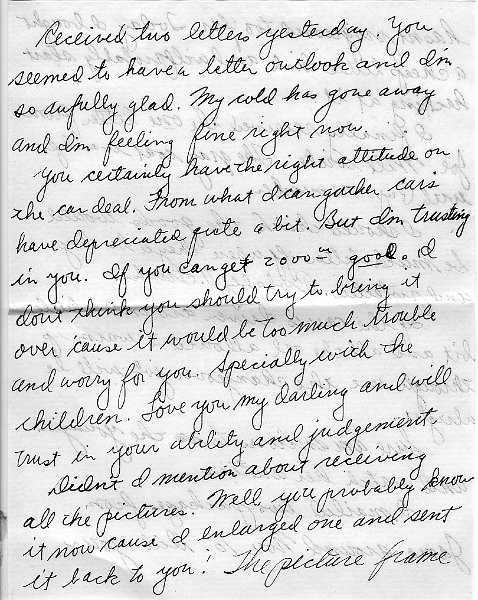 Received two letters yesterday. You
seemed to have a better outlook and I'm
so awfully glad. My cold has gone away
and I'm feeling fine right now.
You certainly have the right attitude on
the car deal. From what I can gather cars
have depreciated quite a bit. But I'm trusting
in you. If you can get 2000 00 good. I
don't think you should try to bring it
over 'cause it would be too much trouble
and worry for you. Specially with the
children. Love you my darling and will
trust in your ability and judgement.
Didn't I mention about receiving
all the pictures. Well you probably know
it now cause I enlarged one and sent
it back to you! The picture frame